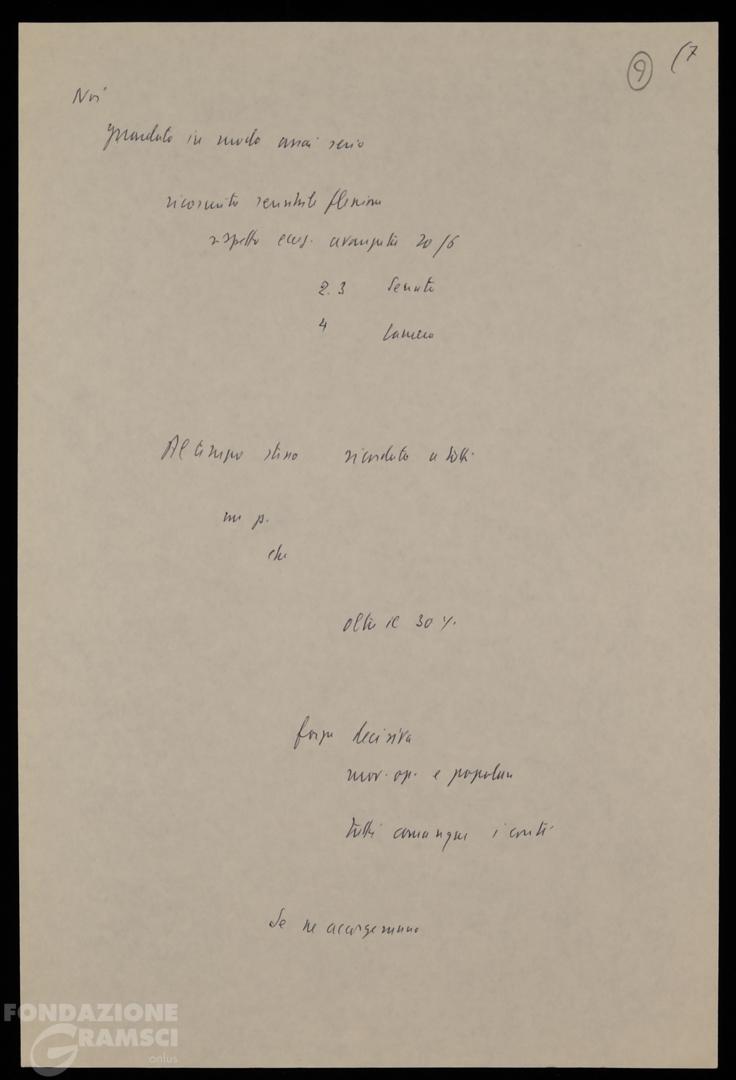 9 (7
Noi
guardato in modo assai serio
riconosciuta sensibile flessione
rispetto ecc. avanzata 20/6
2.3 Senato
4 Camera
Al tempo stesso ricordato a tutti
un p.
che
oltre il 30%
forza decisiva
mov. op. e popolare
tutti comunque i conti
Se ne accorgeranno
FONDAZIONE
GRAMSCI
onlus